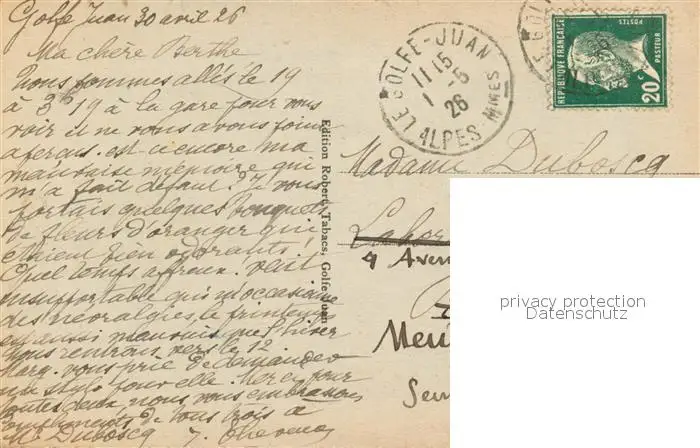 Golfe Juan 30 avril 26
Ma chère Berthe
Nous sommes allés le 19
à 3h 19 à la gare pour vous
voir et ne vous avons point
aperçus. est-ce encore ma
mauvaise mémoire qui
m'a fait défaut? Je vous
portais quelques bouquets
de fleurs d'oranger qui
étaient bien odorants!
Quel temps affreux. vent
insupportable qui m'occasionne
des névralgies, le printemps
est aussi mauvais que l'hiver
Nous rentrons vers le 12
Marg. vous prie de demander
un stylo pour elle. Merci pour
toutes deux, nous vous embrassons
compliments de tous trois à
Mr Duboscq
Edition Robert, Tabacs, Golfe Juan
LE GOLFE-JUAN
11 15
1 - 5
26
ALPES MMES
REPUBLIQUE FRANÇAISE
POSTES
PASTEUR
20 c
Madame Duboscq
4 Aven
Meu
Sei
privacy protection
Datenschutz